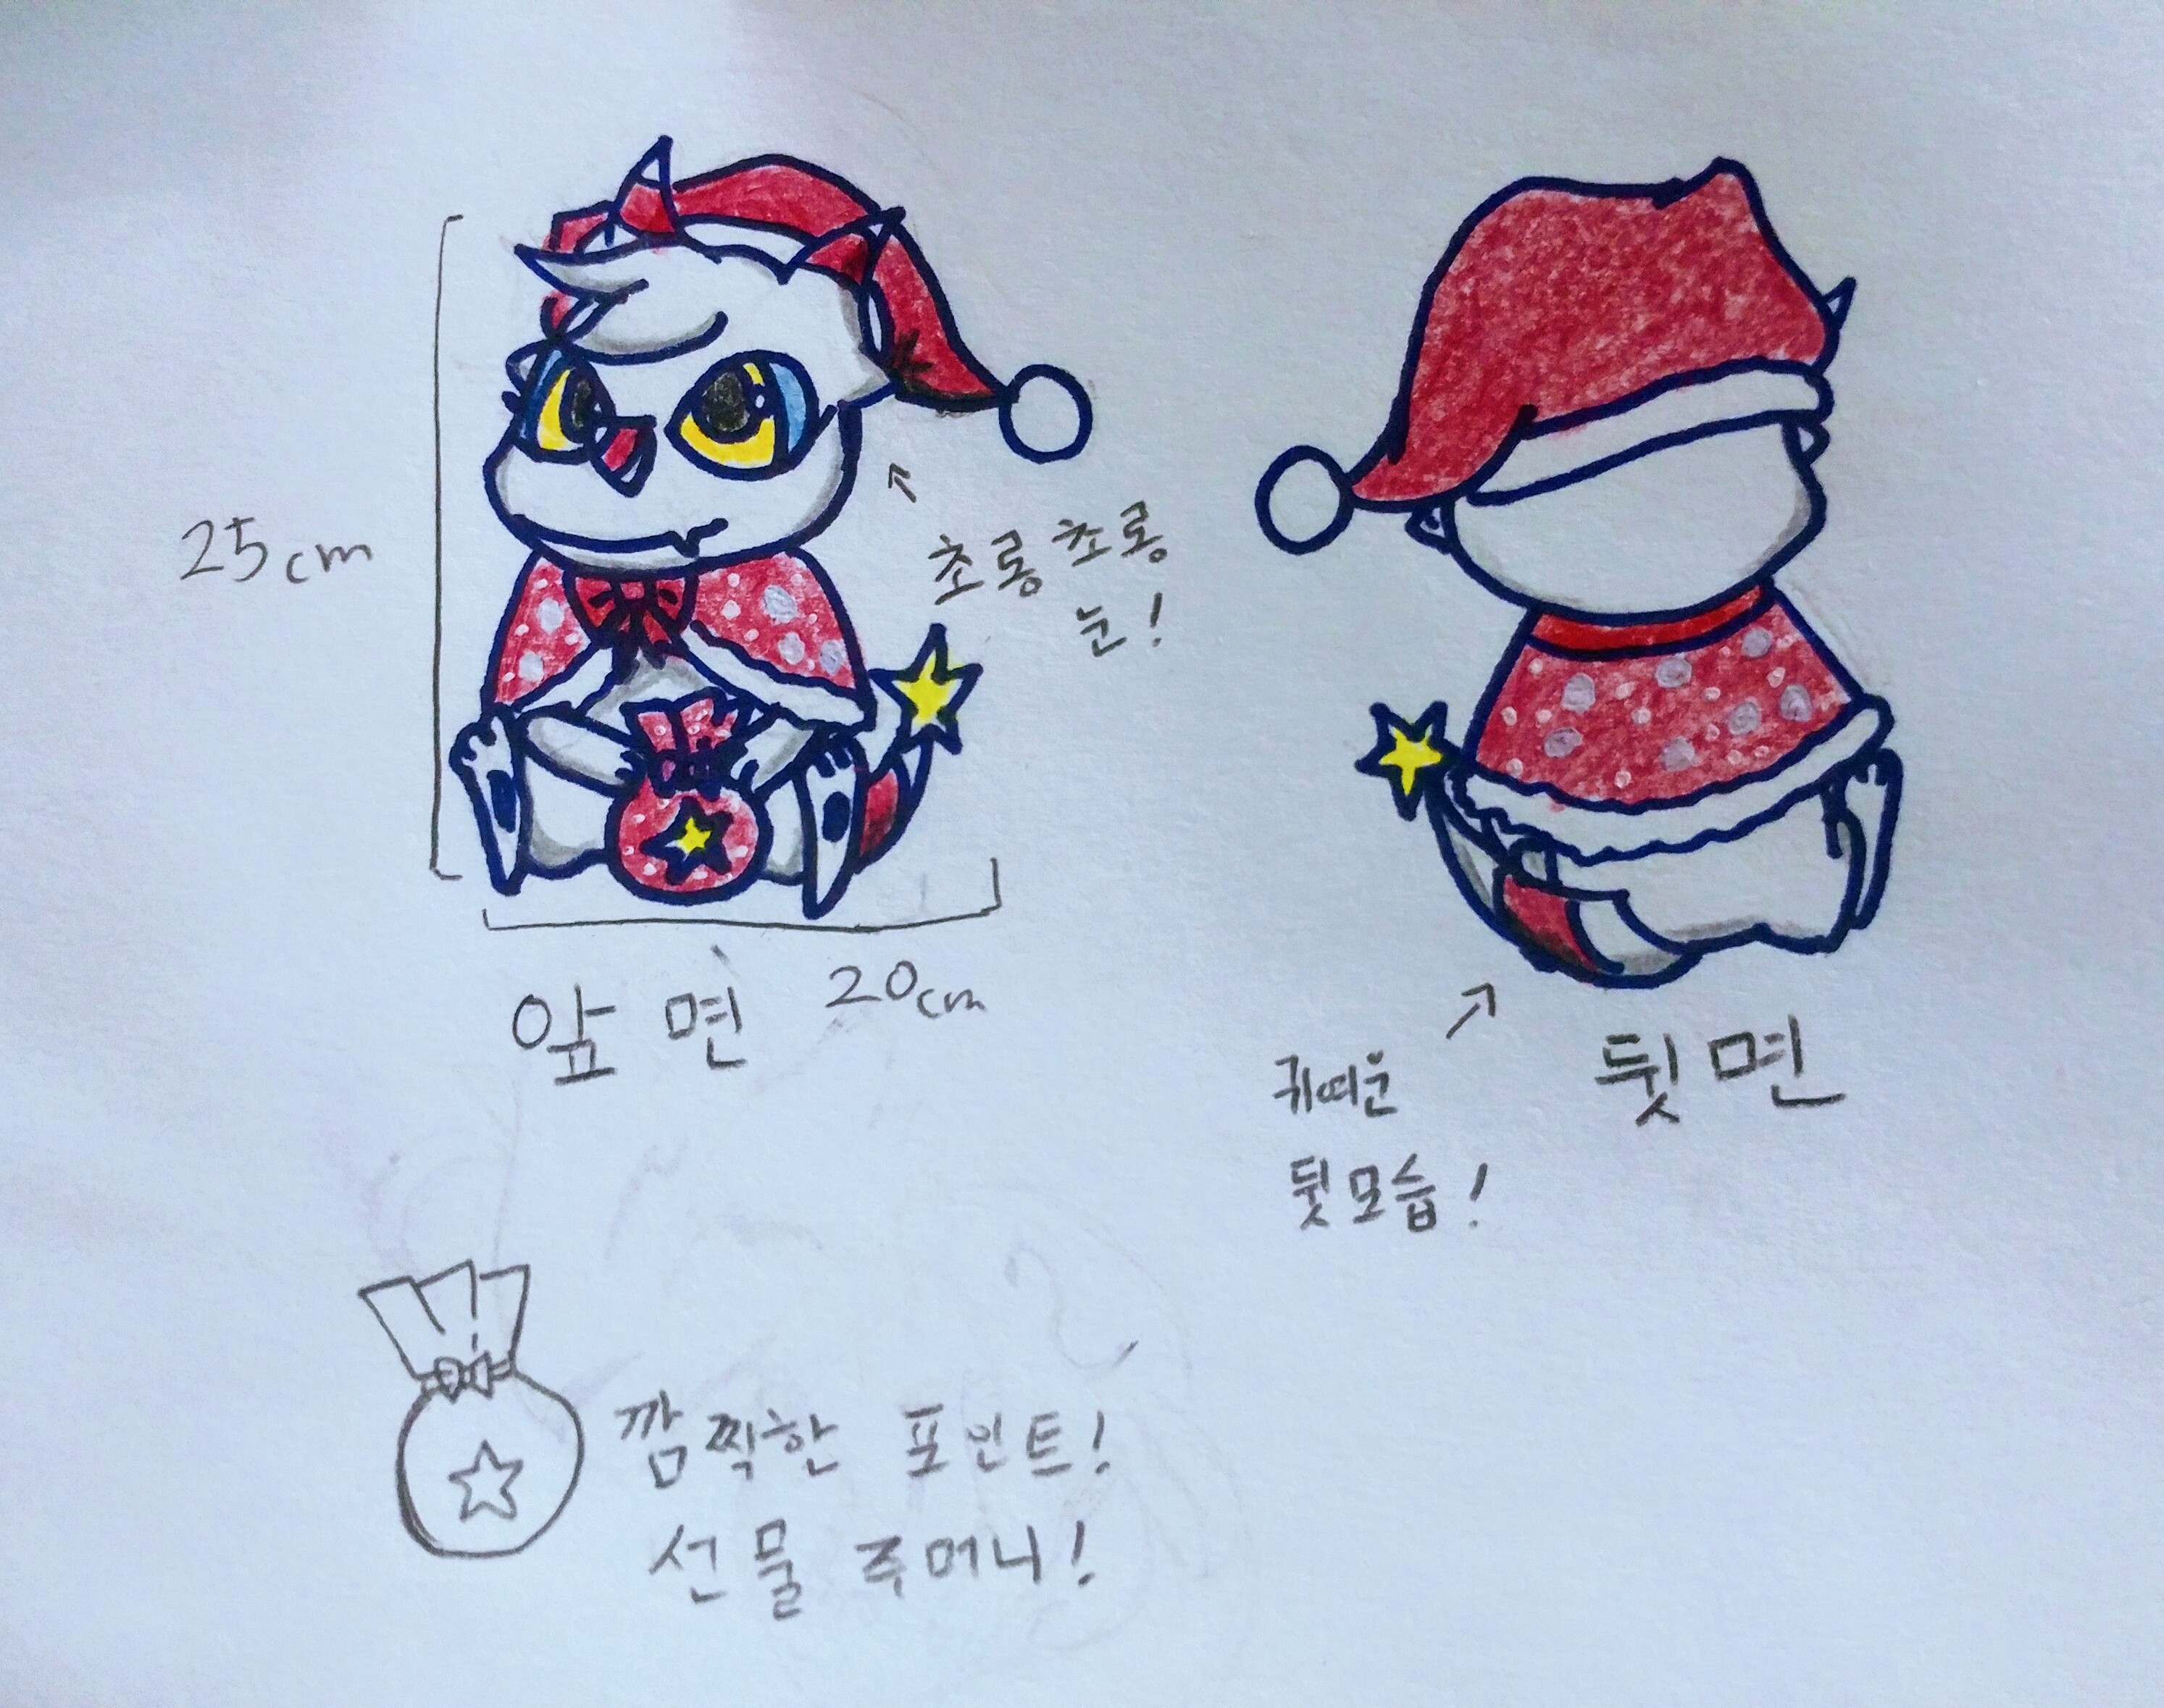 25cm
초롱초롱
눈!
앞면
20cm
귀떠운
뒷모습!
뒷면
깜찍한 포인트!
선물 주머니!